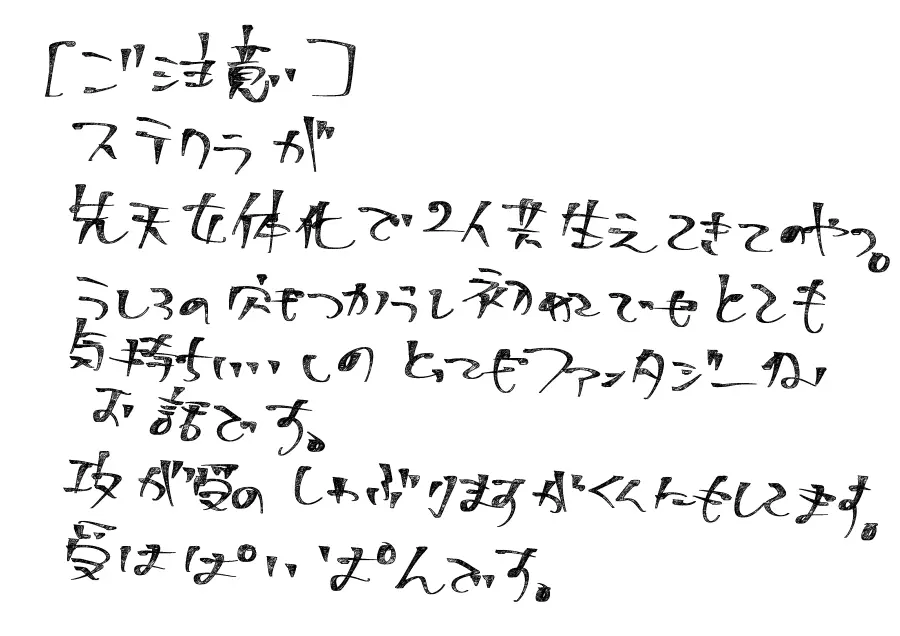 [ご注意]
ステクラが
先天女体化で2人共生えてきてのやつ。
うしろの穴もつかうし初めてでもとても
気持ちいいしの とってもファンタジーな
お話です。
攻が受の しゃぶりますがくんたもしてます。
受はぱいぱんです。